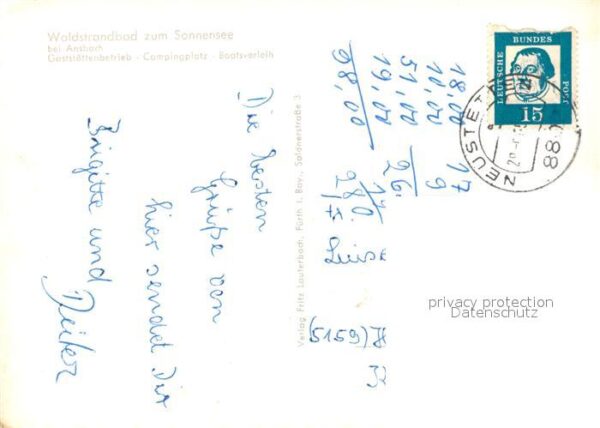 Waldstrandbad zum Sonnensee
bei Ansbach
Gaststättenbetrieb - Campingplatz - Bootsverleih
Die besten
Grüße von
hier sendet Dir
Brigitte und
Dieter
Verlag Fritz Lauterbach, Fürth i. Bay., Saldnerstraße 3
18,00
10,00
51,00
19,00
98,00
17
9
26
Luise
(5159)
DEUTSCHE
BUNDES
POST
15
NEUSTE
privacy protection
Datenschutz